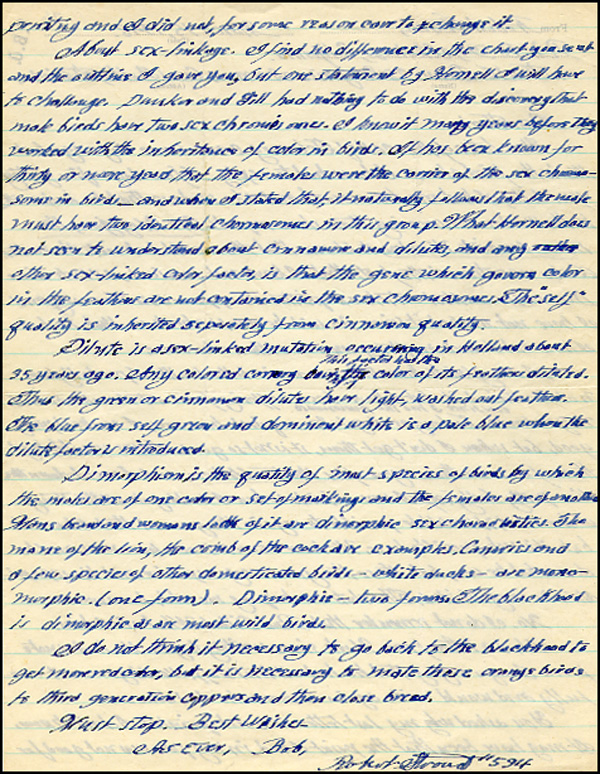 printing and I did not, for some reason care to change it.
About sex-linkage. I find no difference in the chart you sent
and the outline I gave you, but one statement by Hornell I will have
to challenge. Dunker and Gill had nothing to do with the discovery that
male birds have two sex chromosomes. I knew it many years before they
worked with the inheritance of color in birds. It has been known, for
thirty or more years, that the females were the carrier of the sex chromo-
some in birds — and when I stated that it naturally follows that the male
must have two identical chomosomes in this group. What Hornell does
not seem to understand about cinnamon and dilute, and any
other sex-linked color factor, is that the gene which govern color
in the feathers are not contained in the sex chomosomes. The "self"
quality is inherited seperately from cinnamon quality.
Dilute is a sex-linked mutation occurring in Holland about
This factor had the
35 years ago. Any colored canary color of its feathers diluted.
Thus the green or cinnamon dilutes have light, washed out feathers.
The blue from self green and dominent white is a pale blue when the
dilute factor is introduced.
Dimorphism is the quality of most species of birds by which
the males are of one color or set of markings and the females are of another
Mans beard and womans lack of it are dimorphic sex characteristics. The
mane of the lion, the comb of the cock are examples. Canaries and
a few species of other domesticated birds — white ducks — are mono-
morphic. (one form). Dimorphic — two forms. The blackhood
is dimorphic as are most wild birds.
I do not think it necessary to go back to the blackhood to
get more red color, but it is necessary to mate those orange birds
to third generation coppers and then close breed.
Must stop. Best Wishes
As Ever, Bob,
Robert Stroud #594